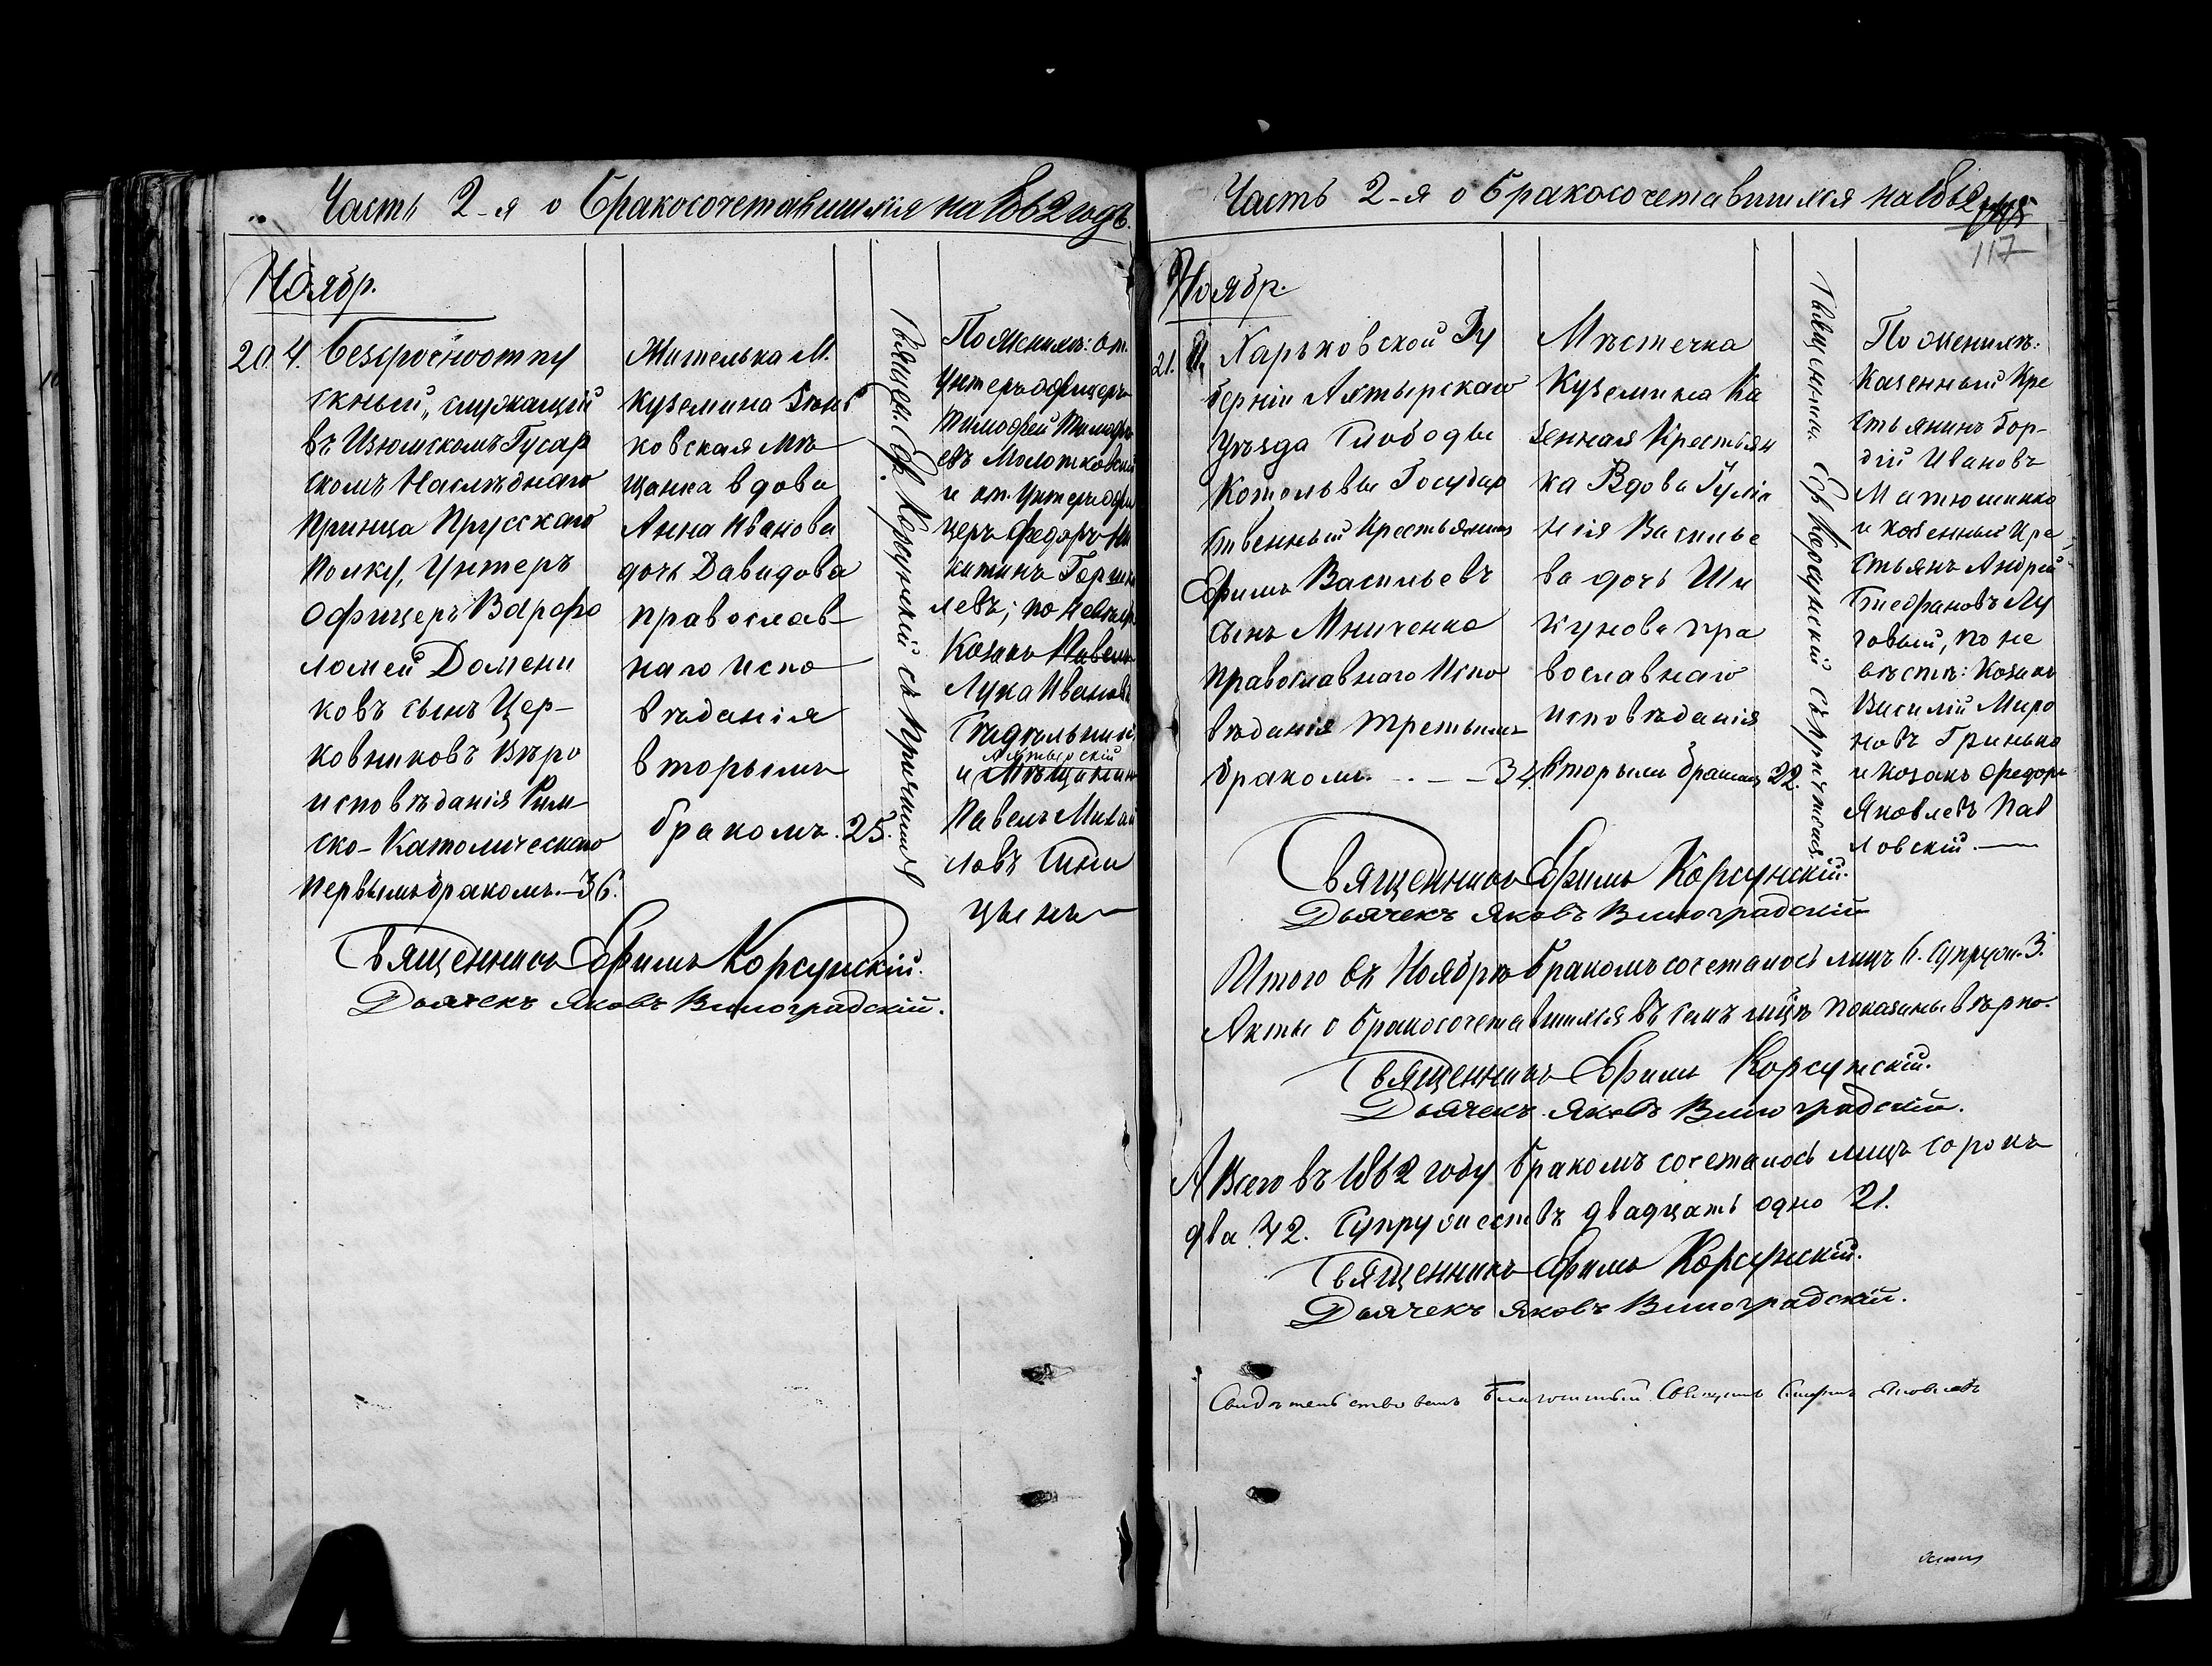 Часть 2-я о Бракосочетавшихся на 1862 годъ.
Ноябр.
20. 4. Безсрочноотпу
скный, служащій
въ Изюмскомъ Гусар
скомъ Наслѣднаго
Принца Прусскаго
Полку, Унтеръ
Офицеръ Варфо
ломей Домени
ковъ сынъ Цер-
ковниковъ Вѣро
исповѣданія Рим
ско-Католическаго
первымъ бракомъ.-36.
Жителька М.
Куземина
ковская Мѣ
щанка вдова
Анна Иванова
дочь Давидова
православ
наго испо
вѣданія
вторымъ
бракомъ. 25.
Священ. Еф. Корсунскій съ причтомъ
По женихѣ: от.
Унтеръ офицеръ
Тимофей Тимофе
евъ Молотковскій
и от. Унтеръ офи
церъ Федоръ Ни
китинъ
левъ; по невѣстѣ
Козакъ Павелъ
Лука Ивановъ
Ахтырскій
и Мѣщанинъ
Павелъ Михай
ловъ Сини
цынъ
Священникъ Ефимъ Корсунскій.
Дьячекъ Яковъ Виноградскій.
Часть 2-я о Бракосочетавшихся на 1862
117
Ноябр.
21. 11. Харьковской Гу
берніи Ахтырскаго
Уѣзда Слободы
Котельвы Государ
ственный Крестьянинъ
Ефимъ Васильевъ
сынъ Мниченко
православнаго Испо
вѣданія третьимъ
бракомъ. - - - 34.
Мѣстечка
Куземина Ка
зенная Крестьян
ка Вдова Гулі
нія Василье
ва дочь Ши
кунова пра
вославнаго
исповѣданія
вторымъ бракомъ 22.
Священникъ Еф. Корсунскій съ причтомъ.
По женихѣ:
Казенный Кре
стьянинъ Гор-
дій Ивановъ
Матюшинко
и казенный Кре
стьян. Андрей
Стефановъ Лу
говый, по не
вѣстѣ: Козакъ
Василій Миро
новъ Гринько
и козакъ Федоръ
Яковлевъ Пав
ловскій
Священникъ Ефимъ Корсунскій.
Дьячекъ Яковъ Виноградскій
Итого въ Ноябрѣ бракомъ сочеталось лицъ 6. супруж. 3.
Акты о бракосочетавшихся въ семъ м-цѣ показаны вѣрно.
Священникъ Ефимъ Корсунскій.
Дьячекъ Яковъ Виноградскій.
А Всего въ 1862 году бракомъ сочеталось лицъ сорокъ
два 42. Супружествъ двадцать одно 21.
Священникъ Ефимъ Корсунскій.
Дьячекъ Яковъ Виноградскій.
Свидѣтельствовалъ Благочинный Священ. Яковлевъ